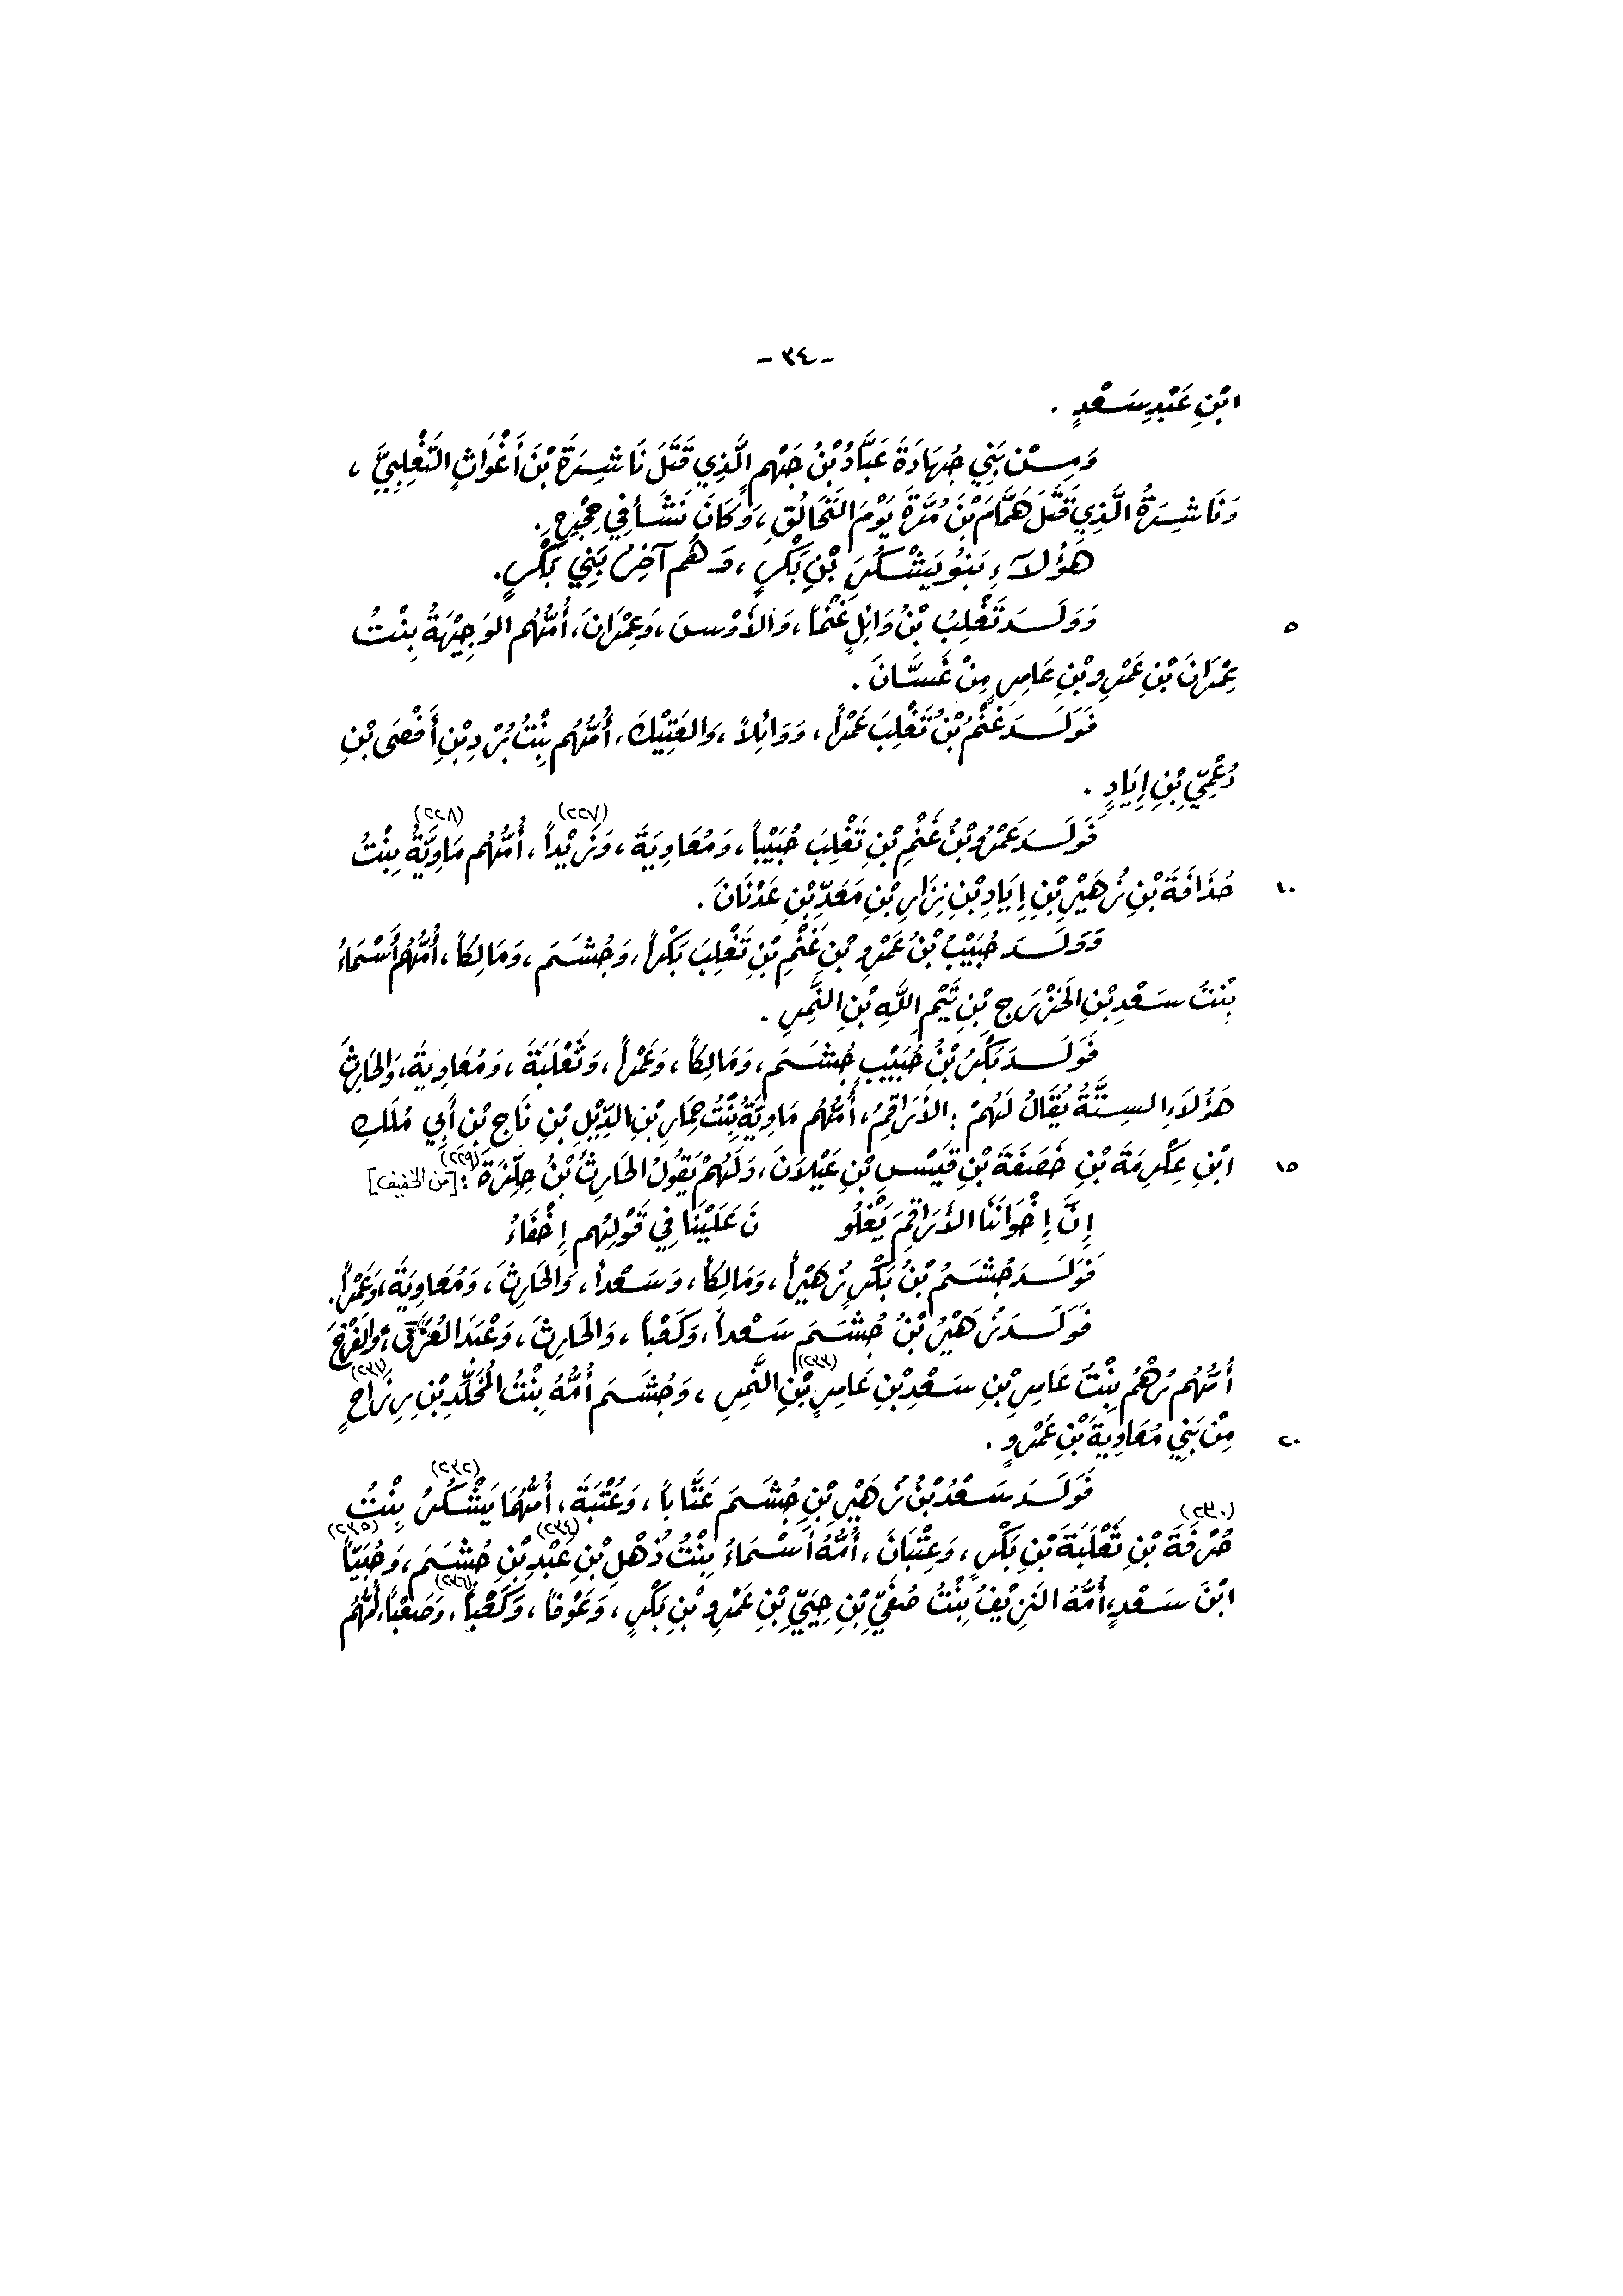 - ٣٤ -
ابْنِ عَبْدِ سَعْدٍ .
وَمِنْ بَنِي جُهَادَةَ عَبَّادُ بْنُ جَهْمٍ الَّذِي قَتَلَ نَاشِرَةَ بْنَ أَغْوَاثٍ التَّغْلِبِيَّ ،
وَنَاشِرَةُ الَّذِي قَتَلَ هَمَّامَ بْنَ مُرَّةَ يَوْمَ التَّحَالُقِ ، وَكَانَ نَشَأَ فِي حِجْرِهِ .
هَؤُلَاءِ بَنُو يَشْكُرَ بْنِ بَكْرٍ ، وَهُم آخِرُ بَنِي بَكْرٍ .
٥ وَوَلَدَ تَغْلِبُ بْنُ وَائِلٍ غَنْمًا ، وَالأَوْسَ ، وَعِمْرَانَ ، أُمُّهُم الوَجِيْهَةُ بِنْتُ
عِمْرَانَ بْنِ عَمْرِو بْنِ عَامِرٍ مِنْ غَسَّانَ .
فَوَلَدَ غَنْمُ بْنُ تَغْلِبَ عَمْراً ، وَوَائِلاً ، وَالعَتِيْكَ ، أُمُّهُم بِنْتُ بُرْدِ بْنِ أَفْصَى بْنِ
دُعْمِيِّ بْنِ إِيَادٍ .
فَوَلَدَ عَمْرُو بْنُ غَنْمِ بْنِ تَغْلِبَ حُبَيْباً ، وَمُعَاوِيَةَ ، وَزَيْداً (٢٢٧) ، أُمُّهُم مَاوِيَّةُ (٢٢٨) بِنْتُ
١٠ حُذَافَةَ بْنِ زُهَيْرِ بْنِ إِيَادِ بْنِ نِزَارِ بْنِ مَعَدِّ بْنِ عَدْنَانَ .
وَوَلَدَ حُبَيْبُ بْنُ عَمْرِو بْنِ غَنْمِ بْنِ تَغْلِبَ بَكْراً ، وَجُشَمَ ، وَمَالِكاً ، أُمُّهُم أَسْمَاءُ
بِنْتُ سَعْدِ بْنِ الخَزْرَجِ بْنِ تَيْمِ اللَّهِ بْنِ النَّمِرِ .
فَوَلَدَ بَكْرُ بْنُ حُبَيْبٍ جُشَمَ ، وَمَالِكاً ، وَعَمْراً ، وَثَعْلَبَةَ ، وَمُعَاوِيَةَ ، وَالحَارِثَ
هَؤُلَاءِ السِتَّةُ يُقَالُ لَهُمْ : الأَرَاقِمُ ، أُمُّهُم مَاوِيَّةُ بِنْتُ حِمَارِ بْنِ الدِّيْلِ بْنِ نَاجِ بْنِ أَبِي مُلَكِ
١٥ ابْنِ عِكْرِمَةَ بْنِ خَصَفَةَ بْنِ قَيْسِ بْنِ عَيْلَانَ ، وَلَهُمْ يَقُولُ الحَارِثُ بْنُ حِلِّزَةَ (٢٢٩) : [من الخفيف]
إِنَّ إِخْوَانَنَا الأَرَاقِمَ يَغْلُو نَ عَلَيْنَا فِي قَوْلِهُم إِخْفَاءُ
فَوَلَدَ جُشَمُ بْنُ بَكْرٍ زُهَيْراً ، وَمَالِكاً ، وَسَعْداً ، وَالحَارِثَ ، وَمُعَاوِيَةَ ، وَعَمْراً .
فَوَلَدَ زُهَيْرُ بْنُ جُشَمَ سَعْداً ، وَكَعْباً ، وَالحَارِثَ ، وَعَبْدَ العُزَّى ، وَالفَرْخَ
أُمُّهُم رُهْمُ بِنْتُ عَامِرِ بْنِ سَعْدِ بْنِ عَامِرٍ بْنِ (٢٣٣) النَّمِرِ ، وَجُشَمَ أُمُّهُ بِنْتُ المُخَلَّدِ بْنِ رِزَاحٍ (٢٣١)
٢٠ مِنْ بَنِي مُعَاوِيَةَ بْنِ عَمْرٍو .
فَوَلَدَ سَعْدُ بْنُ زُهَيْرِ بْنِ جُشَمَ عَتَّاباً ، وَعُتْبَةَ ، أُمُّهُمَا يَشْكُرُ (٢٣٢) بِنْتُ
حُرْفَةَ (٢٣٠) بْنِ ثَعْلَبَةَ بْنِ بَكْرٍ ، وَعِتْبَانَ ، أُمُّهُ أَسْمَاءُ بِنْتُ ذُهْلِ بْنِ عَبْدِ (٢٣٤) بْنِ جُشَمَ ، وَحُبَيّاً (٢٣٥)
ابْنَ سَعْدٍ ، أُمُّهُ النَزِيْفُ بِنْتُ صُفَيِّ بْنِ حِيَيِّ بْنِ عَمْرِو بْنِ بَكْرٍ ، وَعَوْفاً ، وَكَعْباً (٢٣٦) ، وَصَعْباً ، أُمُّهُمُ